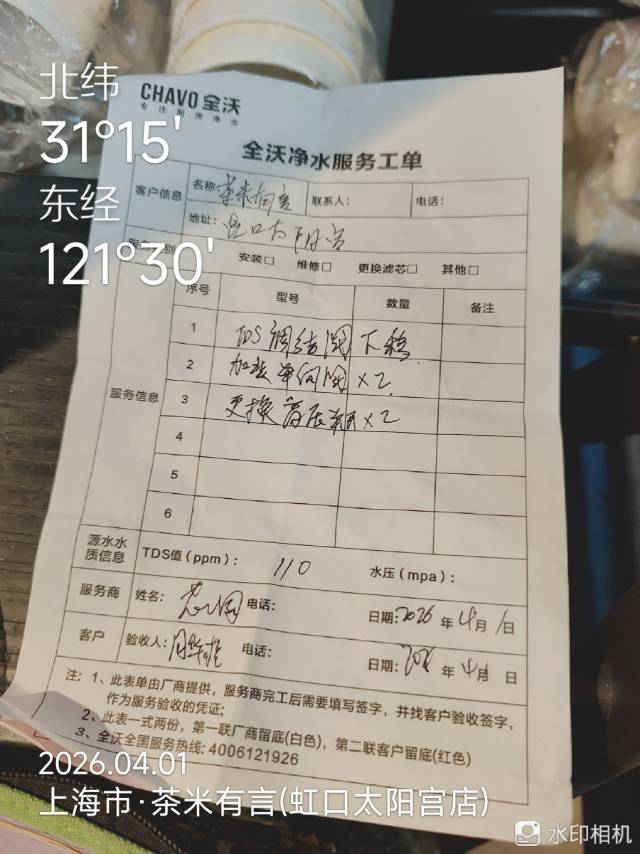 北纬
31°15'
东经
121°30'
CHAVO 全沃
专注厨房净水
全沃净水服务工单
客户信息 名称: 茶米有言 联系人: 电话:
地址: 虹口太阳宫
安装□ 维修□ 更换滤芯□ 其他□
服务信息 序号 型号 数量 备注
1 TDS调结阀 下稳
2 加装单向阀 ×2
3 更换高压 ×2
4
5
6
源水水质信息 TDS值(ppm): 110 水压(mpa):
服务商 姓名: 电话: 日期: 2026 年 4 月 1 日
客户 验收人: 电话: 日期: 年 4 月 日
注: 1、此表单由厂商提供，服务商完工后需要填写签字，并找客户验收签字，
作为服务验收的凭证;
2、此表一式两份，第一联厂商留底(白色)，第二联客户留底(红色)
3、全沃全国服务热线: 4006121926
2026.04.01
上海市·茶米有言(虹口太阳宫店)
水印相机